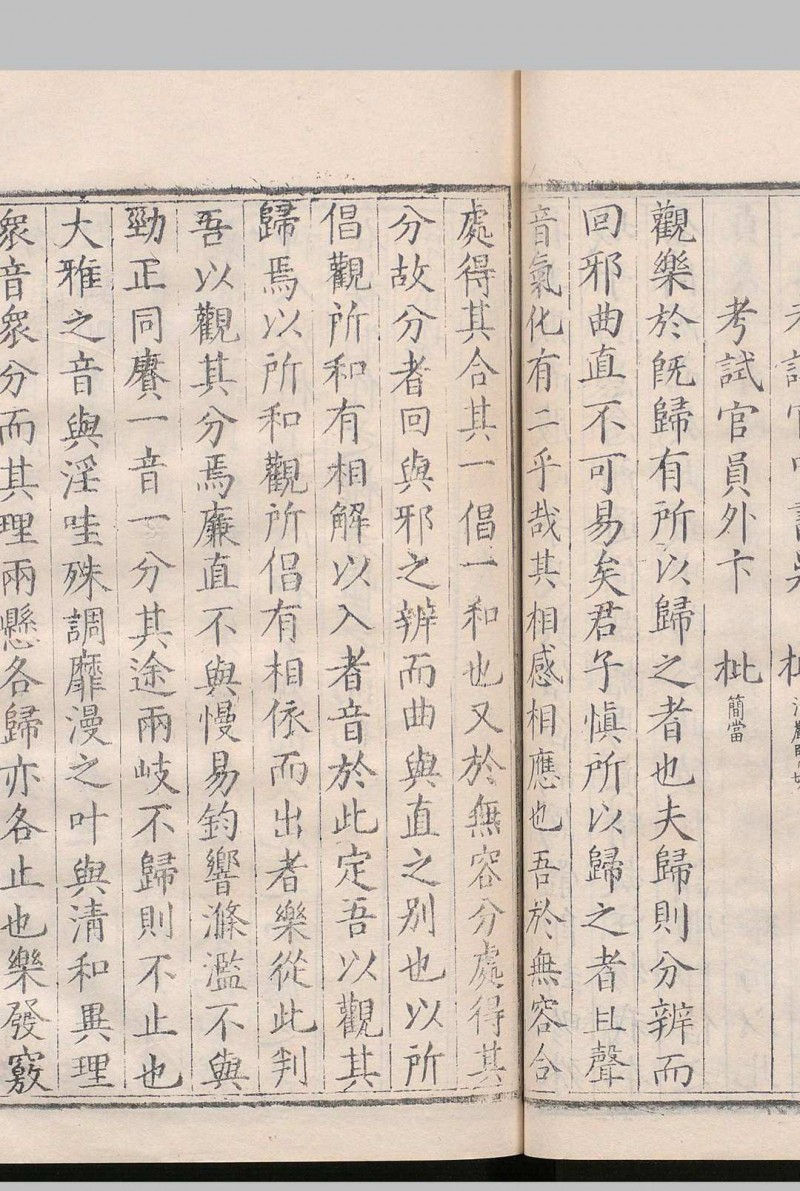 考試官員外卞　批簡當
觀樂於旣歸有所以歸之者也夫歸則分辨而
回邪曲直不可易矣君子慎所以歸之者且聲
音氣化有二乎哉其相感相應也吾於無容合
處得其合其一倡一和也又於無容分處得其
分故分者回與邪之辨而曲與直之别也以所
倡觀所和有相解以入者音於此定吾以觀其
歸焉以所和觀所倡有相依而出者樂從此判
吾以觀其分焉廉直不與慢易鈞響滌濫不與
勁正同賡一音一分其途兩岐不歸則不止也
大雅之音與淫哇殊調靡漫之叶與清和異理
衆音衆分而其理兩懸各歸亦各止也樂發竅